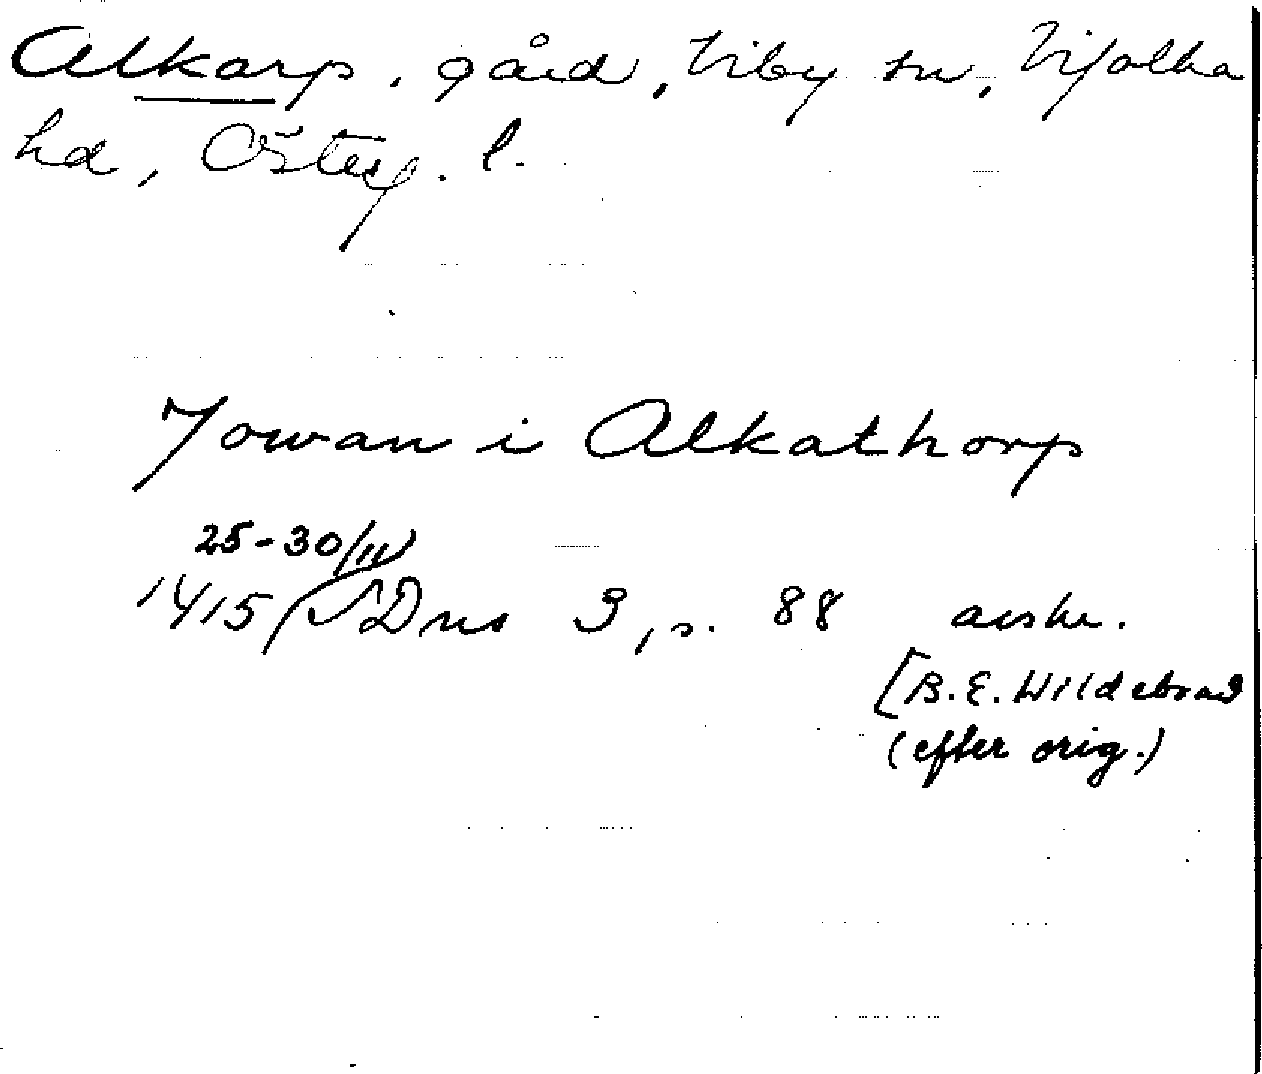 Alkarp, gård, Viby sn, Vifolka
hd, Österg. l.
Jowan i Alkathorp
25-30/11
1415 SDns 3, s. 88 avskr.
[B.E. Hildebrand
(efter orig.)